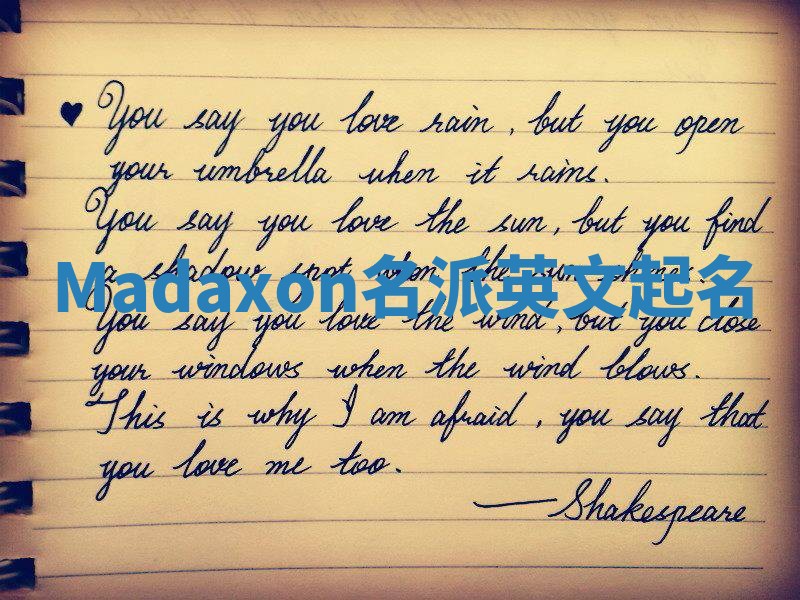 ♥ You say you love rain, but you open
your umbrella when it rains.
You say you love the sun, but you find
a shadow spot when the sun shines.
Madaxon名派英文起名
You say you love the wind, but you close
your windows when the wind blows.
This is why I am afraid, you say that
you love me too.
—Shakespeare